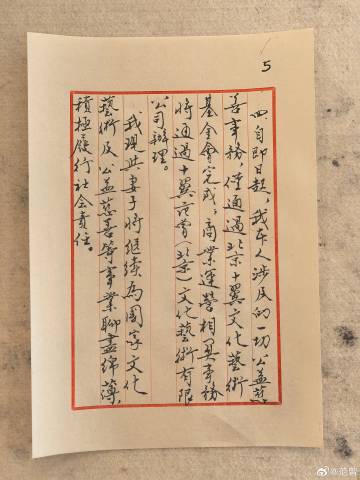 5
四、自即日起，我本人涉及的一切公益慈
善事務，僅通過北京十翼文化藝術
基金會完成；商業運營相關事務
將通過十翼范曾（北京）文化藝術有限
公司辦理。
我現與妻子將繼續為國家文化
藝術及公益慈善等事業聊盡綿薄，
積極履行社會責任。
@范曾